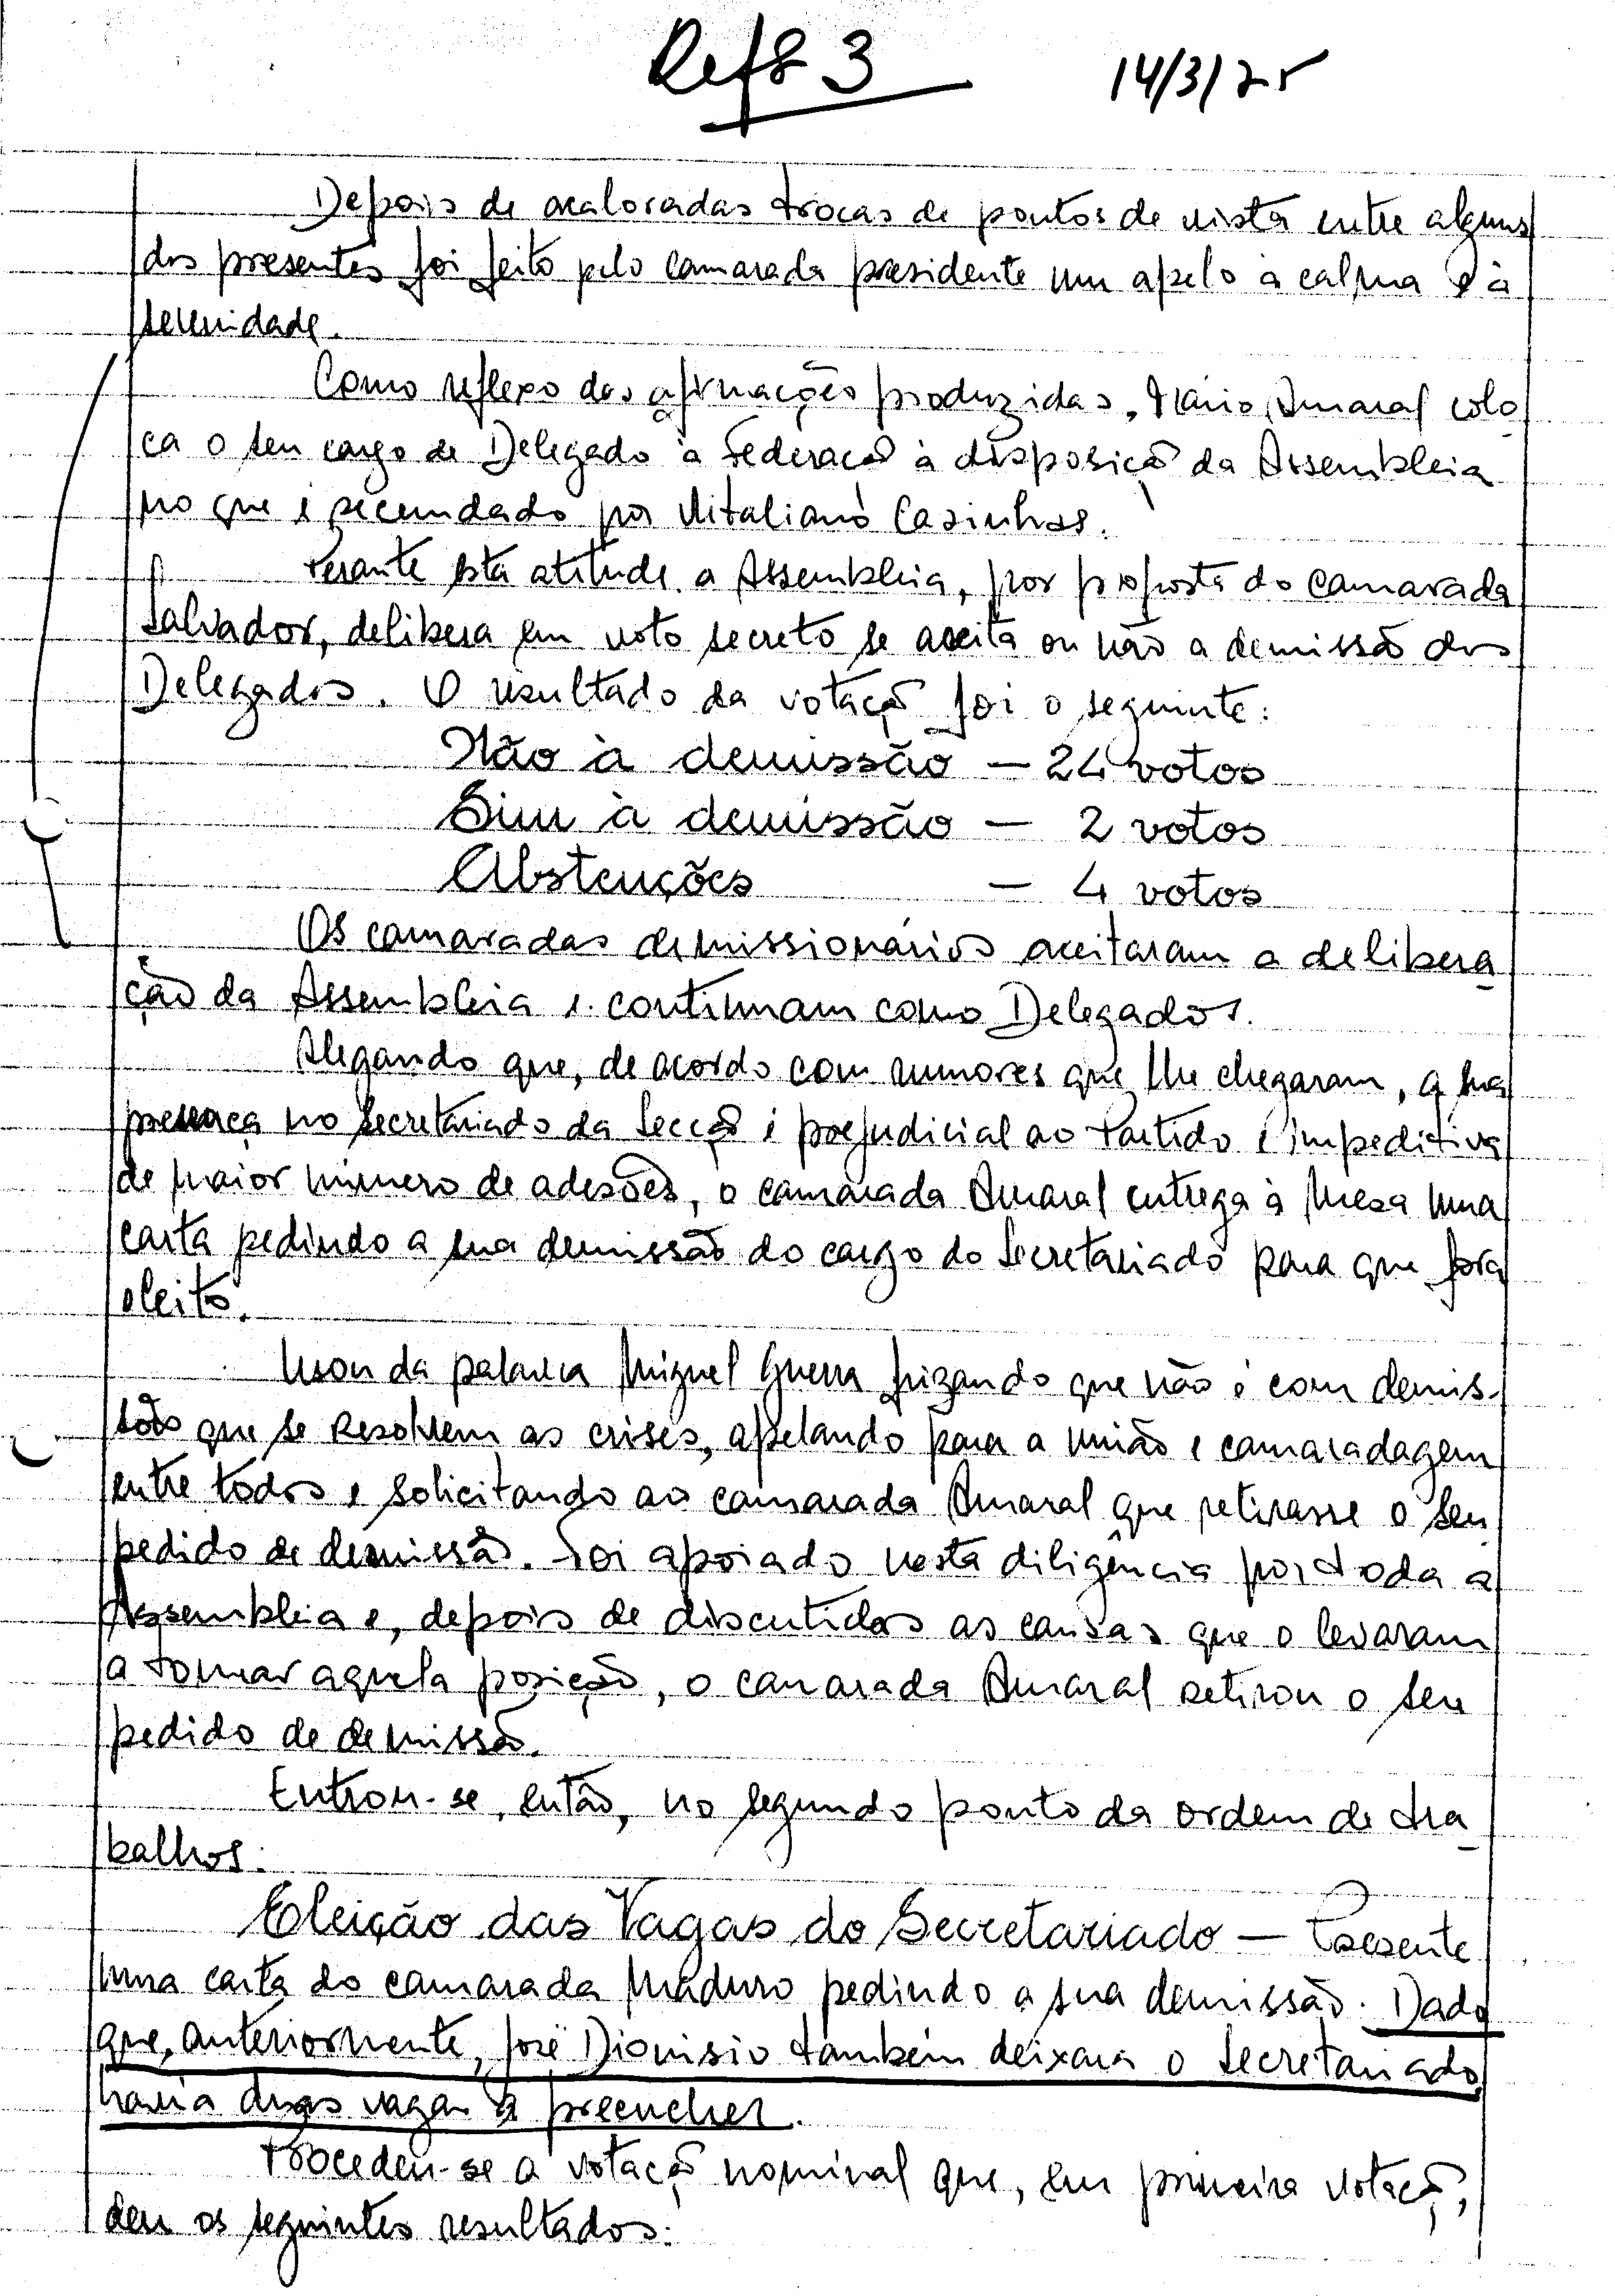 Refª 3 14/3/75
Depois de acaloradas trocas de pontos de vista entre alguns
dos presentes foi feito pelo camarada presidente um apelo à calma e à
serenidade.
Como reflexo das afirmações produzidas, Mário Amaral colo
ca o seu cargo de Delegado à Federação à disposição da Assembleia
no que é secundado por Vitaliano Casinhas.
Perante esta atitude a Assembleia, por proposta do camarada
Salvador, delibera em voto secreto se aceita ou não a demissão dos
Delegados. O resultado da votação foi o seguinte:
Não à demissão – 24 votos
Sim à demissão – 2 votos
Abstenções – 4 votos
Os camaradas demissionários aceitaram a delibera
ção da Assembleia e continuam como Delegados.
Alegando que, de acordo com rumores que lhe chegaram, a sua
presença no Secretariado da Secção é prejudicial ao Partido e impeditiva
de maior número de adesões, o camarada Amaral entrega à Mesa uma
carta pedindo a sua demissão do cargo do Secretariado para que fora
eleito.
Usou da palavra Miguel Guerra frizando que não é com demis-
sões que se resolvem as crises, apelando para a união e camaradagem
entre todos e solicitando ao camarada Amaral que retirasse o seu
pedido de demissão. Foi apoiado nesta diligência por toda a
Assembleia e, depois de discutidas as causas que o levaram
a tomar aquela posição, o camarada Amaral retirou o seu
pedido de demissão.
Entrou-se, então, no segundo ponto da ordem de tra
balhos:
Eleição das Vagas do Secretariado – Presente
uma carta do camarada Maduro pedindo a sua demissão. Dado
que, anteriormente, José Dionísio também deixara o Secretariado
havia duas vagas a preencher.
Procedeu-se a votação nominal que, em primeira votação,
deu os seguintes resultados: